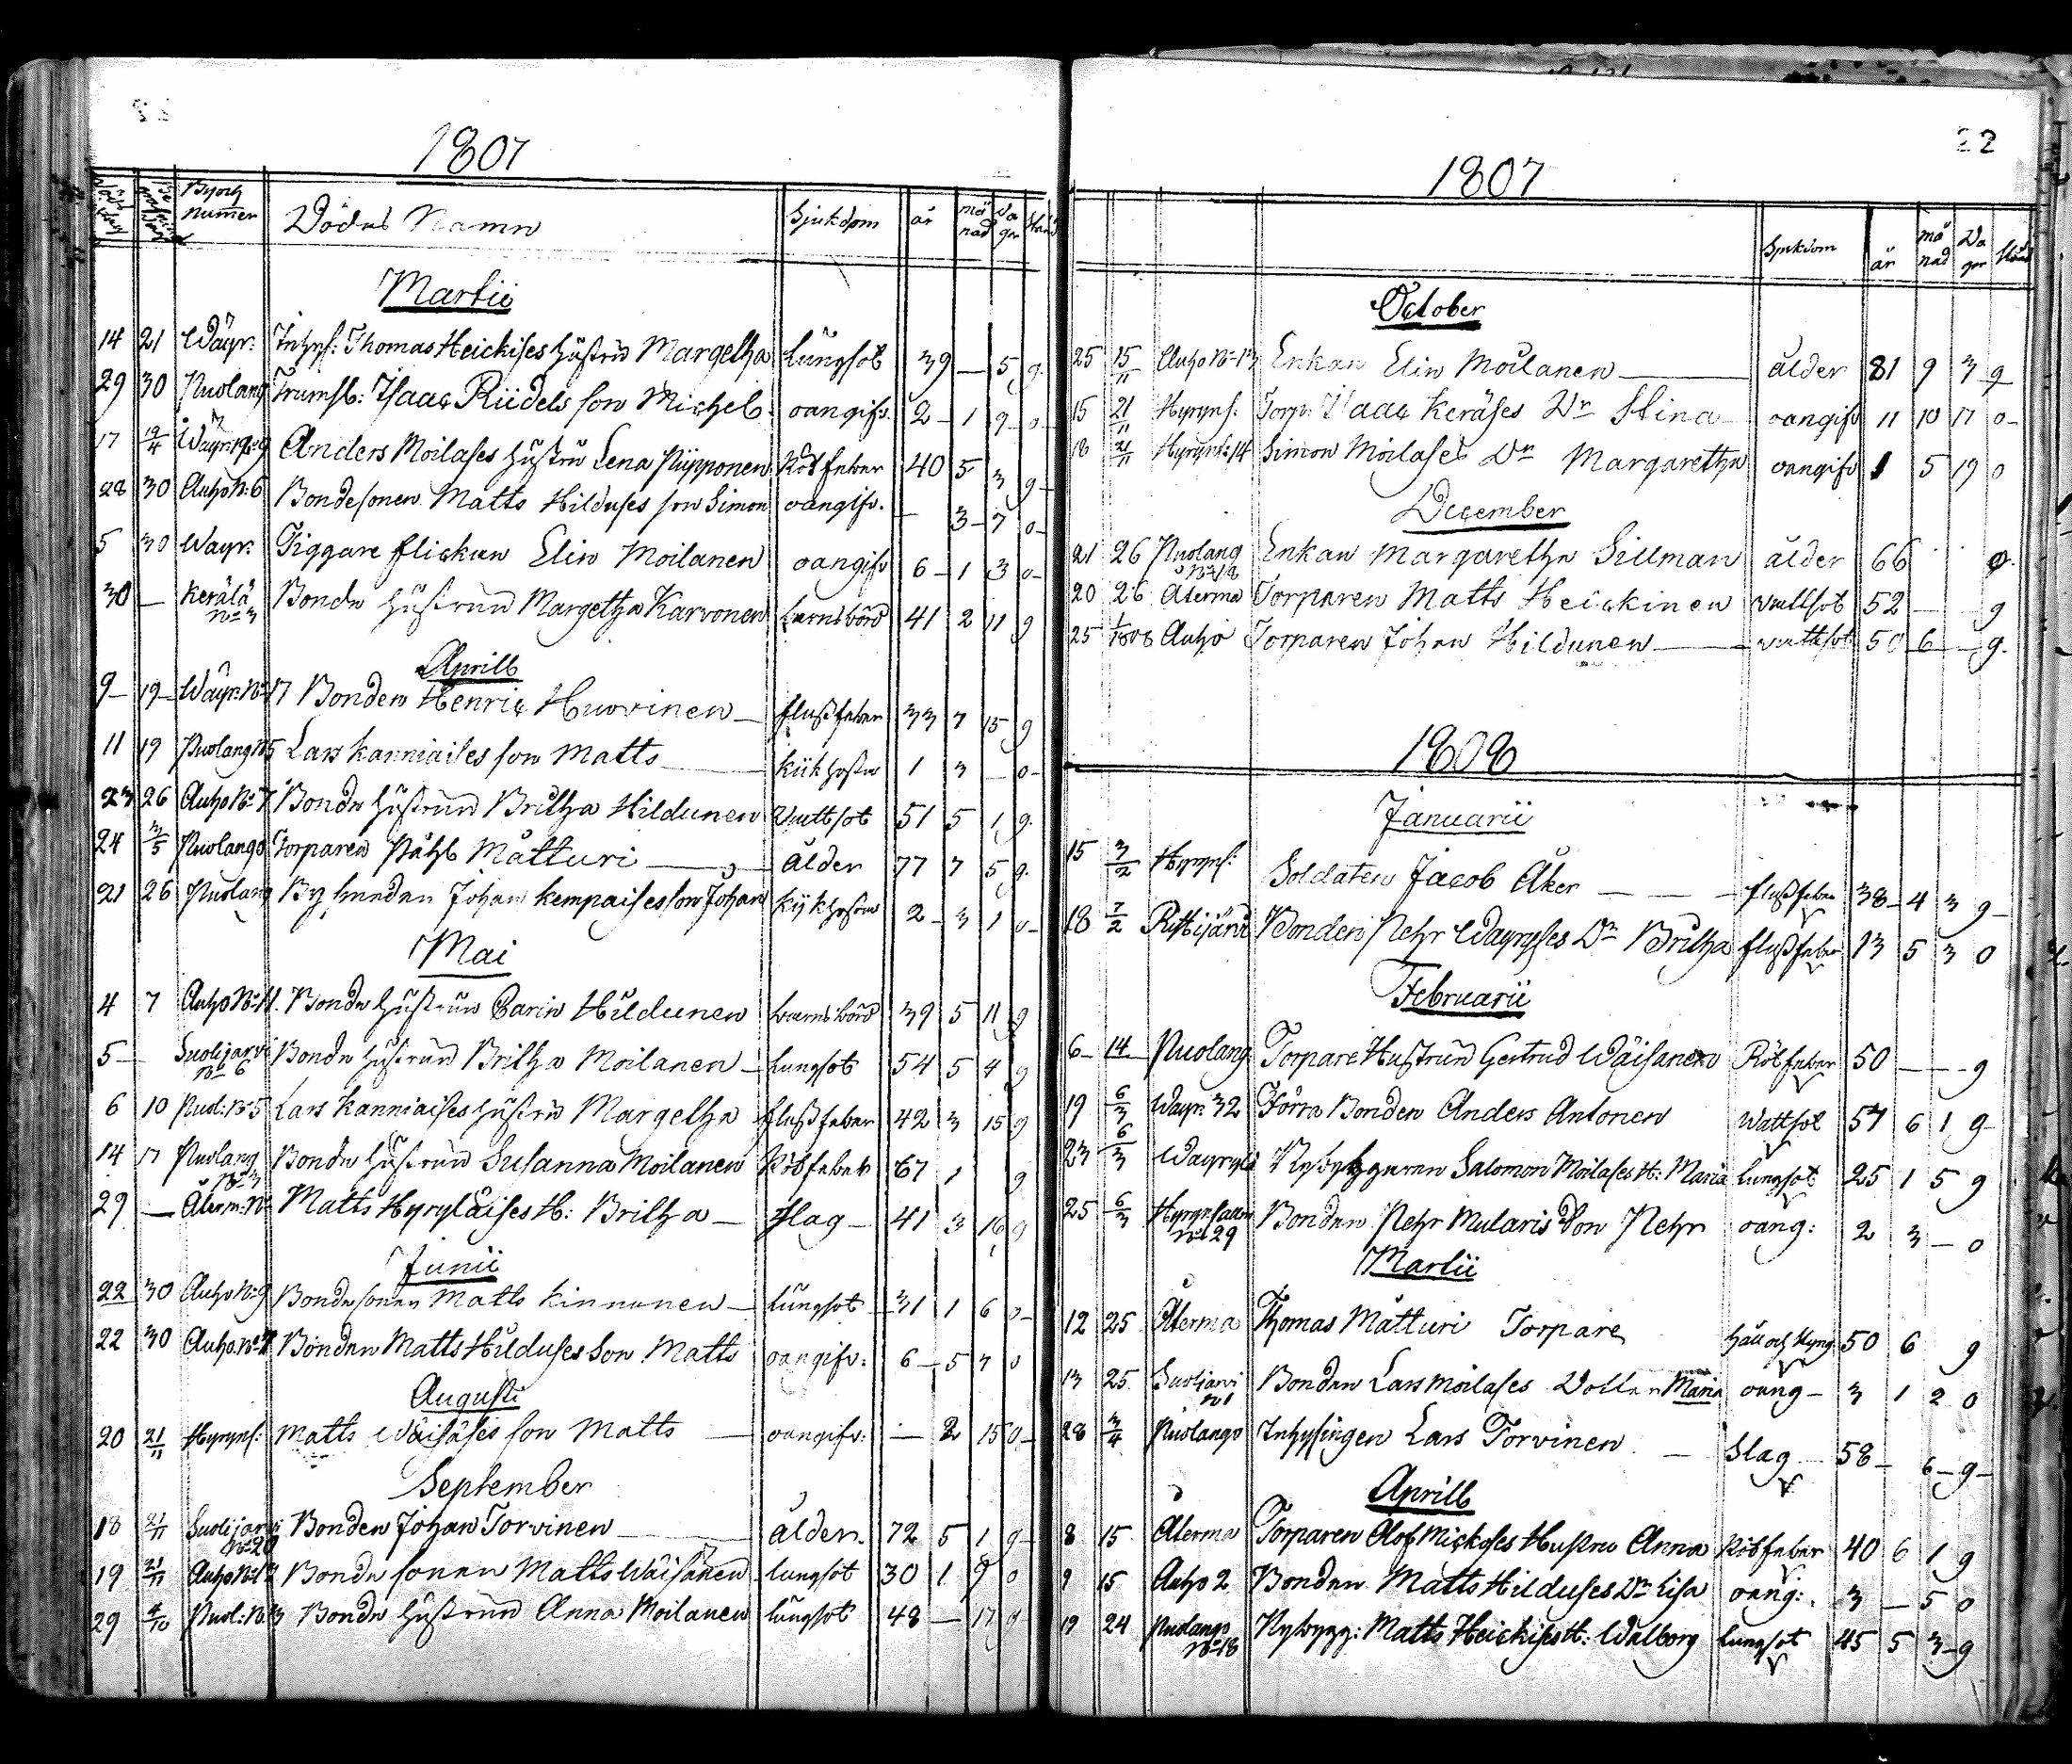 1807
By och numer Dödas Namn Sjukdom år månad dagar Stånd
Martii
14 21 Wäyr: Inhys: Thomas Heickises Hustru Margetha Lungsot 39 — 5 g
29 30 Puolang Trumsl: Isaac Rüdels son Michel oangifv. 2 - 1 9 o
17 19/4 Wäyr: 19 Anders Moilases Hustru Lena Piipponen Rötfeber 40 5 3 g
28 30 Auho N:6 Bondesonen Matts Hilduses son Simon oangifv. — 3 - 7 o
5 30 Wayr: Tiggare flickan Elin Moilanen oangifv 6 - 1 3 o
30 — Kerälä No 3 Bonde Hustrun Margetha Karvonen barnsbörd 41 2 11 g
Aprill
9 19 Wäyr: No 17 Bonden Henric Huovinen — flussfeber 33 7 15 g
11 19 Puolang No 5 Lars Kanniaises son Matts — Kikhosta 1 3 — o
23 26 Auho No 7 Bonde Hustrun Britha Hildunen Vattsot 51 5 1 g
24 3/5 Puolango Torparen Påhl Mätturi — ålder 77 7 5 g
21 26 Puolang By smeden Johan Kempaises son Johan Kykhosta 2 - 3 1 o
Mai
4 7 Auho No 11 Bonde Hustrun Carin Hildunen barnsbörd 39 5 11 g
5 — Suolijarvi No 6 Bonde Hustrun Britha Moilanen — Lungsot 54 5 4 g
6 10 Puol: No 5 Lars Kanniaises Hustru Margetha flussfeber 42 3 15 g
14 17 Puolang No 3 Bonde Hustrun Susanna Moilanen Rötfeber 67 1 g
29 — Äterm: No Matts Hyryläises H: Britha — slag — 41 3 16 g
Junii
22 30 Auho No 9 Bonde sonen Matts Kinnunen — Lungsot — 31 1 6 o
22 30 Auho No 7 Bonden Matts Hilduses Son Matts oangifv: 6 - 5 7 o
Augusti
20 21/11 Hyryns: Matts Wäisäses son Matts — oangifv: — 2 15 o
September
18 21/11 Suolijarvi No 20 Bonden Johan Torvinen — ålder. 72 5 1 g
19 21/11 Auho No 12 Bonde sonen Matts Wäisänen lungsot 30 1 9 o
29 4/10 Puol: No 13 Bonde Hustrun Anna Moilanen lungsot 48 — 17 g
22
1807
Sjukdom år månad Dagar Stånd
October
25 15/11 Auho No 13 Enkan Elin Moilanen — ålder 81 9 3 g
15 21/11 Hyryns: Torp: Isaac Keräses Dr Stina oangifv 11 10 17 o
18 21/11 Hyryns: 14 Simon Moilases Dr Margaretha oangifv 1 5 19 o
December
21 26 Puolang Enkan Margaretha Sillman ålder 66 g
20 26 Äterma Torparen Matts Heickinen vattsot 52 — — g
25 1/1808 Auho Torparen Johan Hildunen — vattsot 50 6 — g.
1808
Januarii
15 3/2 Hyryns: Soldaten Jacob Åker — — — flussfeber 38 - 4 3 g
18 7/2 Ristijärvi Bonden Pehr Wäyryses Dr Britha flussfeber 13 5 3 o
Februarii
6 14 Puolang Torpare Hustrun Gertrud Wäisanen Rötfeber 50 — — g
19 6/3 Wayr: 32 Förra Bonden Anders Antonen Wattsot 57 6 1 g
23 6/3 Wäyrylä Nybyggaren Salomon Moilases H: Maria Lungsot 25 1 5 g
25 6/3 Hyrynsalmi No 29 Bonden Pehr Mularis Son Pehr oang: 2 3 — o
Martii
12 25 Äterma Thomas Mätturi Torpare Håll och styng 50 6 g
13 25 Suolijarvi No 1 Bonden Lars Moilases Dotter Maria oang — 3 1 2 o
28 3/4 Puolango Inhysingen Lars Torvinen — Slag 58 — 6 - g
Aprill
8 15 Äterma Torparen Olof Mickoses Hustru Anna Rötfeber 40 6 1 g
9 15 Auho 2 Bonden Matts Hilduses Dr Lisa oang: 3 — 5 o
19 24 Puolango No 18 Nybygg: Matts Heickises H: Walborg Lungsot 45 5 3 g